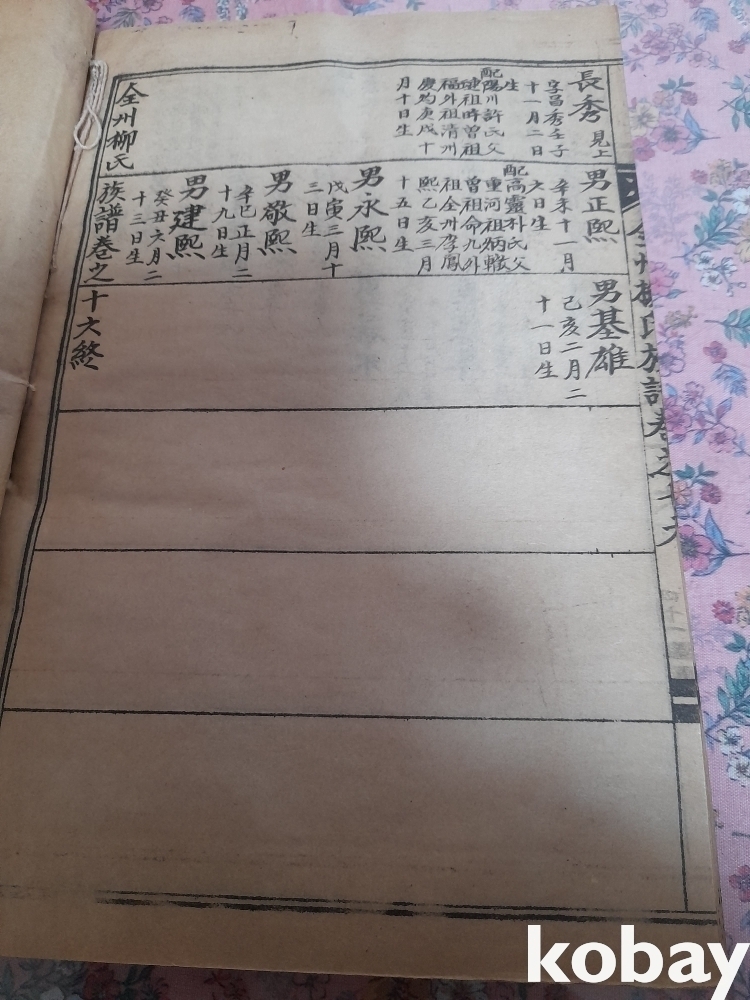 長秀 見上
字昌秀壬子
十一月二日
生
配陽川許氏父
祖時曾祖
福外祖清州
慶灼庚戌十
月十日生
男正熙
辛未十一月
六日生
配高靈朴氏父
重河祖炳轍
曾祖命九外
祖全州李鳳
熙乙亥三月
十五日生
男永熙
戊寅三月十
三日生
男敬熙
辛巳正月二
十九日生
男建熙
癸丑六月二
十三日生
男基雄
己亥二月二
十一日生
全州柳氏族譜卷之十六終
全州柳氏族譜卷之十六
四十一
kobay